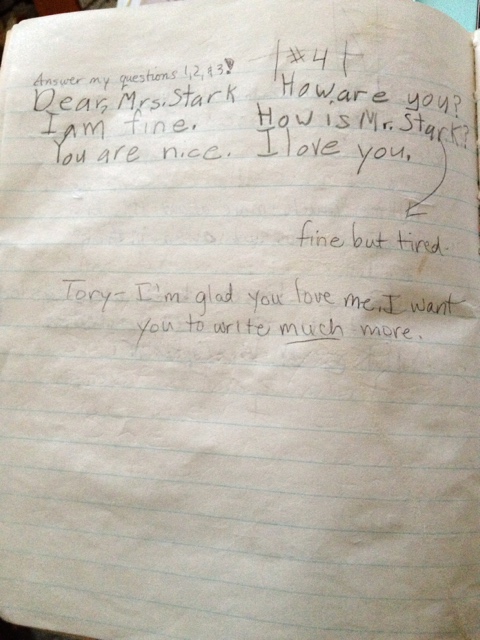 #4
Answer my questions 1,2,&3!
Dear, Mrs. Stark How are you?
I am fine. How is Mr. Stark?
You are nice. I love you.
fine but tired.
Tory- I'm glad you love me. I want
you to write much more.